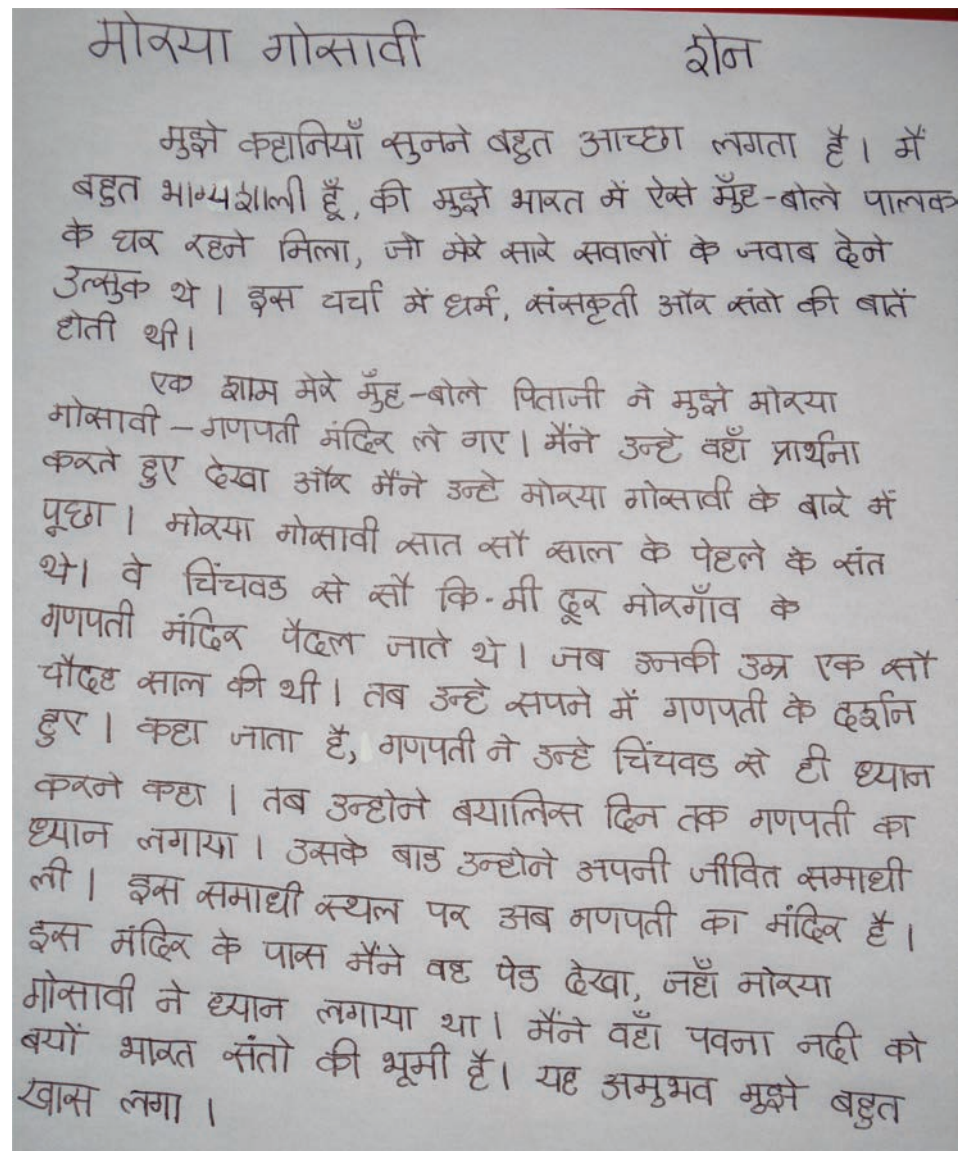 मोरया गोसावी शेन
मुझे कहानियाँ सुनने बहुत आच्छा लगता है। मैं
बहुत भाग्यशाली हूँ, की मुझे भारत में ऐसे मुँह-बोले पालक
के घर रहने मिला, जो मेरे सारे सवालों के जवाब देने
उत्सुक थे। इस चर्चा में धर्म, संसकृती और संतो की बातें
होती थी।
एक शाम मेरे मुँह-बोले पिताजी ने मुझे मोरया
गोसावी – गणपती मंदिर ले गए। मैंने उन्हे वहाँ प्रार्थना
करते हुए देखा और मैंने उन्हे मोरया गोसावी के बारे में
पूछा। मोरया गोसावी सात सौ साल के पेहले के संत
थे। वे चिंचवड से सौ कि.मी दूर मोरगाँव के
गणपती मंदिर पैदल जाते थे। जब उनकी उम्र एक सौ
चौदह साल की थी। तब उन्हे सपने में गणपती के दर्शन
हुए। कहा जाता है, गणपती ने उन्हे चिंचवड से ही ध्यान
करने कहा। तब उन्होने बयालिस दिन तक गणपती का
ध्यान लगाया। उसके बाड उन्होने अपनी जीवित समाधी
ली। इस समाधी स्थल पर अब गणपती का मंदिर है।
इस मंदिर के पास मैंने वह पेड देखा, जहाँ मोरया
गोसावी ने ध्यान लगाया था। मैंने वहाँ पवना नदी को
बयों भारत संतो की भूमी है। यह अमुभव मुझे बहुत
खास लगा।